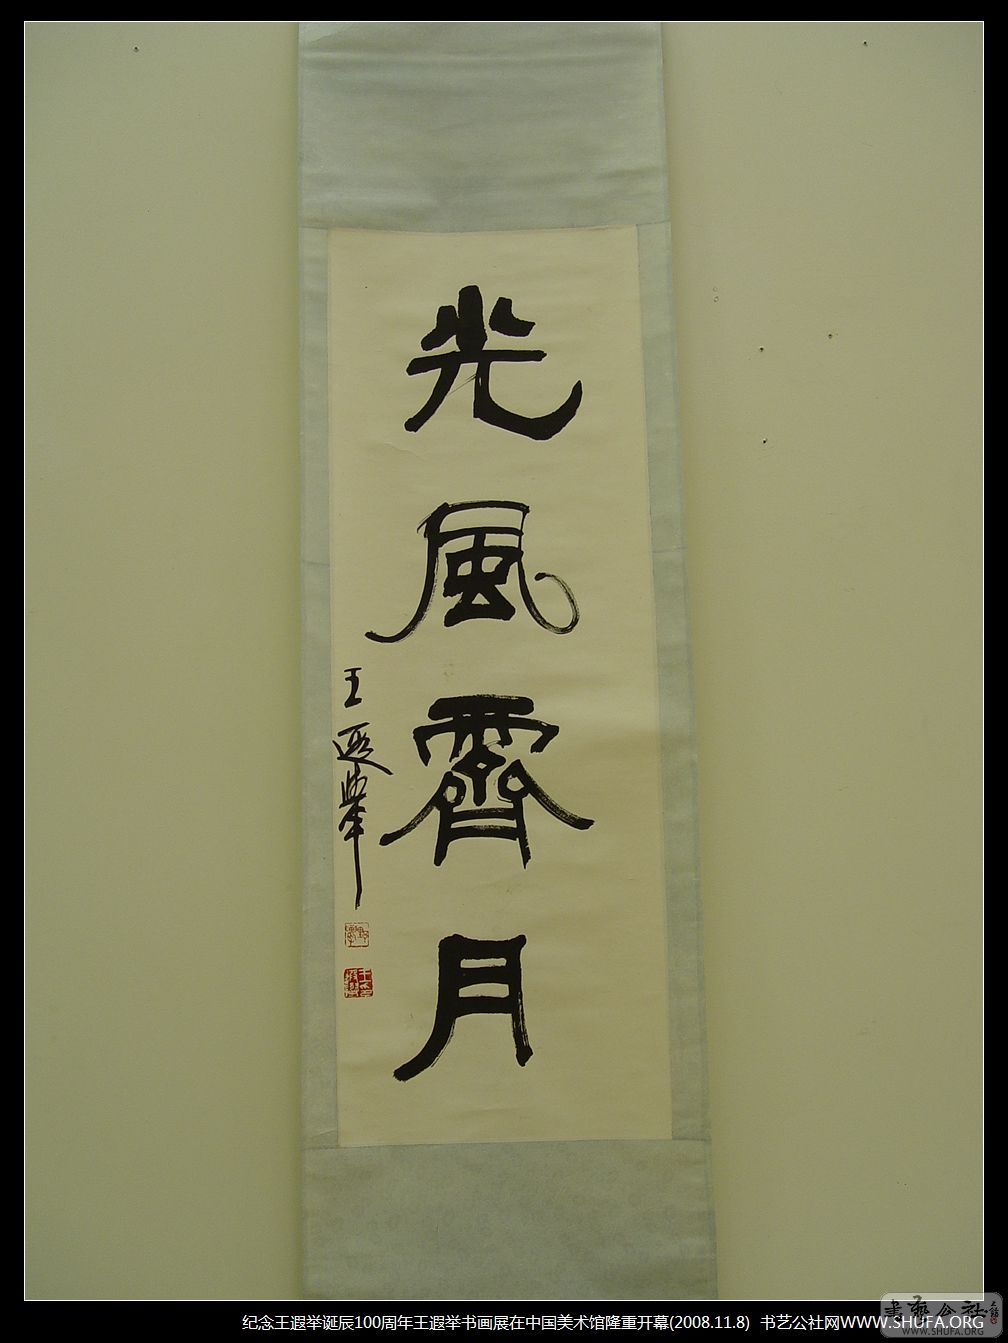 光風霽月
王遐舉
纪念王遐举诞辰100周年王遐举书画展在中国美术馆隆重开幕(2008.11.8) 书艺公社网WWW.SHUFA.ORG
書藝公社
WWW.SHUFA.ORG